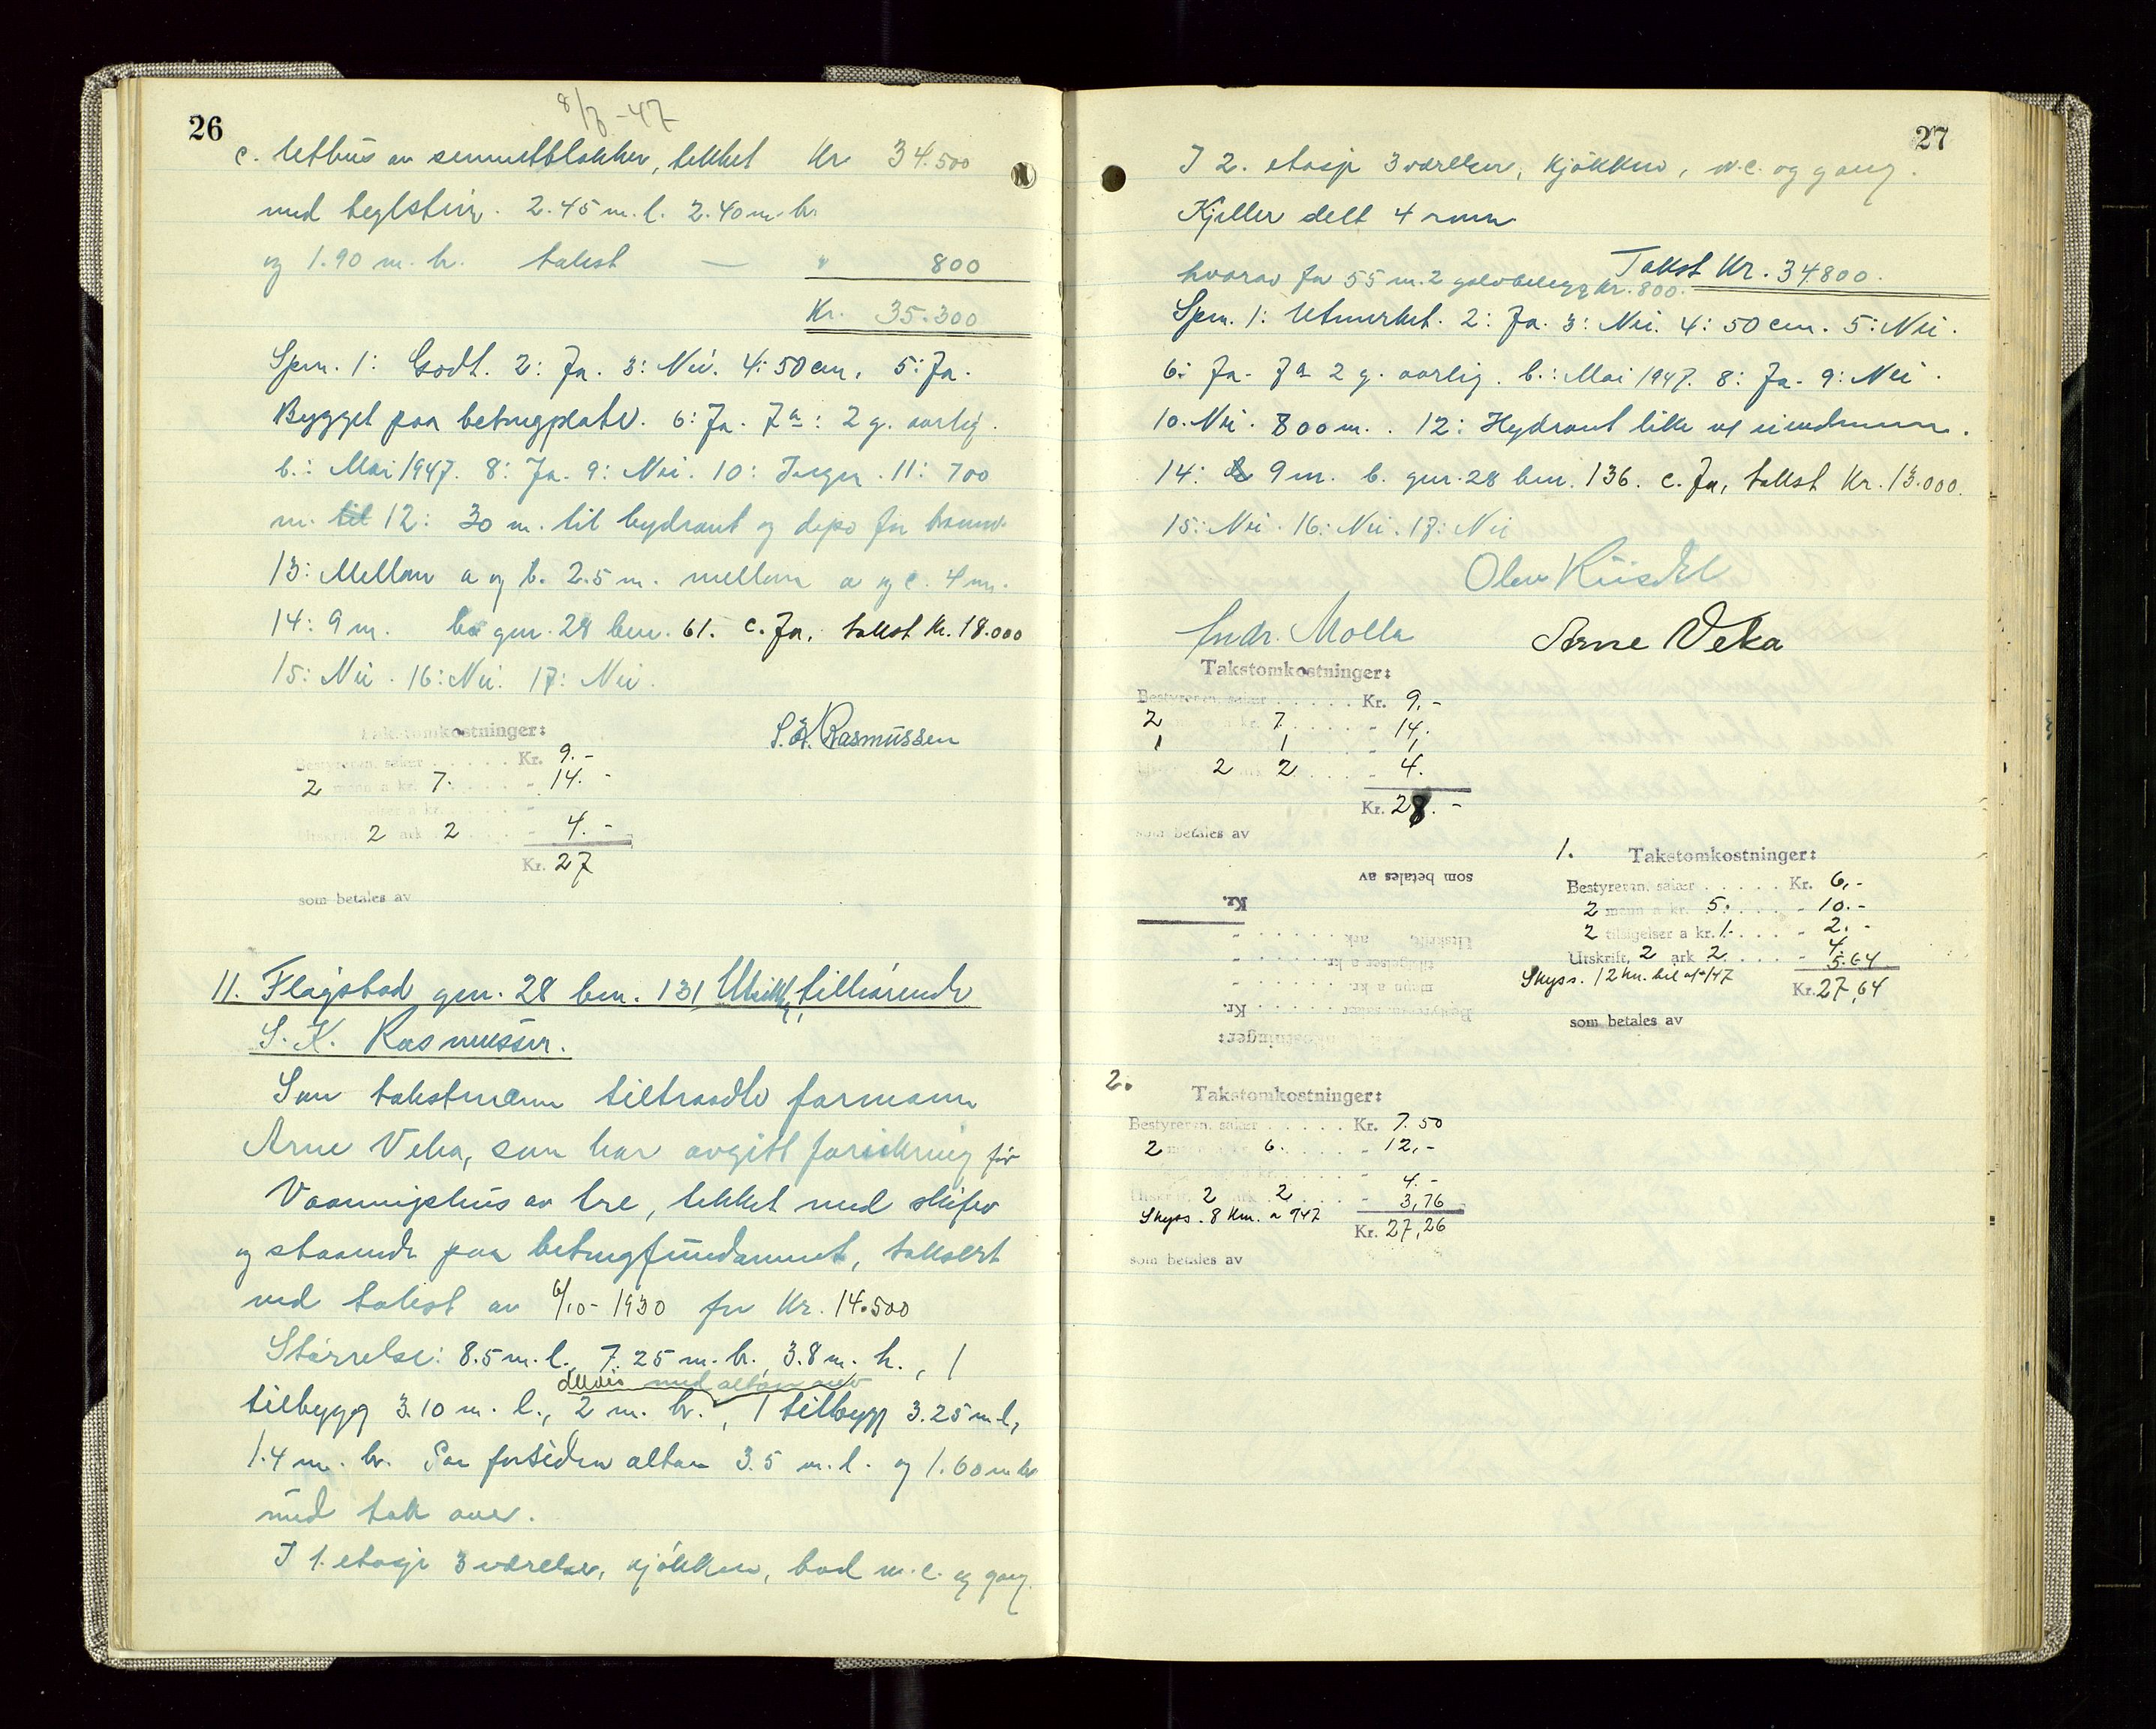 26
8/7-47
c. Uthus av sementblokker, tekket Kr 34.500
med teglstein. 2.45 m. l. 2.40 m. br
og 1.90 m. h. takst — " 800
Kr. 35.300
Spm. 1: Godt. 2: Ja. 3: Nei. 4: 50 cm. 5: Ja.
Bygget paa betongplate. 6: Ja. 7a: 2 g. aarlig.
b.: Mai 1947. 8: Ja. 9: Nei. 10: Ingen. 11: 700
m. til 12: 30 m. til hydrant og depo for brannv.
13: Mellom a og b. 2.5 m. mellom a og c. 4 m.
14: 9 m. b. gnr. 28 bnr. 61. c. Ja, takst Kr. 18.000
15: Nei. 16: Nei. 17: Nei.
S. K. Rasmussen
Takstomkostninger:
Bestyreren, saker . . . . . Kr. 9.-
2 mann a kr. 7. . . . - 14.-
tilsigelser a kr. . . . -
Utskrift, 2 ark 2 . . . - 4.-
Kr. 27
som betales av
11. Flagstad gnr. 28 bnr. 131 Utsikt, tilhørende
S. K. Rasmussen.
Som takstmann tiltraadte formann
Arne Veka, som har avgitt forsikring for
Vaaningshus av tre, tekket med skifer
og staaende paa betongfundament, taksert
ved takst av 6/10-1930 for Kr. 14.500
Størrelse: 8.5 m. l. 7.25 m. br. 3.8 m. h., 1
delvis med altan over
tilbygg 3.10 m. l., 2 m. br., 1 tilbygg 3.25 m l,
1.4 m. br. Paa forsiden altan 3.5 m. l. og 1.60 m br
med tak over.
I 1. etasje 3 værelser, kjøkken, bad w.c. og gang.
27
I 2. etasje 3 værelser, kjøkken, w.c. og gang.
Kjeller delt 4 rum
Takst Kr. 34.800.
hvorav for 55 m.2 golvbelegg Kr. 800.
Spm. 1: Utmerket. 2: Ja. 3: Nei. 4: 50 cm. 5: Nei.
6: Ja. 7a 2 g. aarlig. b.: Mai 1947. 8: Ja. 9: Nei.
10. Nei. 800 m. . 12: Hydrant like ved eiendommen.
14: 9 m. b. gnr. 28 bnr. 136. c. Ja, takst Kr. 13.000.
15: Nei. 16: Nei. 17: Nei
Olav Riisdal
Andr. Molla Arne Veka
Takstomkostninger:
Bestyreren, saker . . . . . Kr. 9.-
2 mann a kr. 7. . . . - 14.
1 1 . . . - 1
2 2 . . . - 4.
Kr. 28.-
som betales av
som betales av
Kr.
Utskrift, ark . . . . -
tilsigelser a kr. . . . -
mann a kr. . . . . -
Bestyreren, saker . . . . . Kr.
Takstomkostninger:
1. Takstomkostninger:
Bestyreren, saker . . . . . Kr. 6,-
2 mann a kr. 5. . . . - 10.-
2 tilsigelser a kr. 1.- . . . - 2.-
Utskrift, 2 ark 2 . . . . 4.
Skyss. 12 km. bil a -/47 5.64
Kr. 27,64
som betales av
2. Takstomkostninger:
Bestyreren, saker . . . . . Kr. 7.50
2 mann a kr. 6. . . . - 12,-
Utskrift, 2 ark 2 . . . - 4.-
Skyss. 8 Km. a -/47 3,76
Kr. 27,26
som betales av